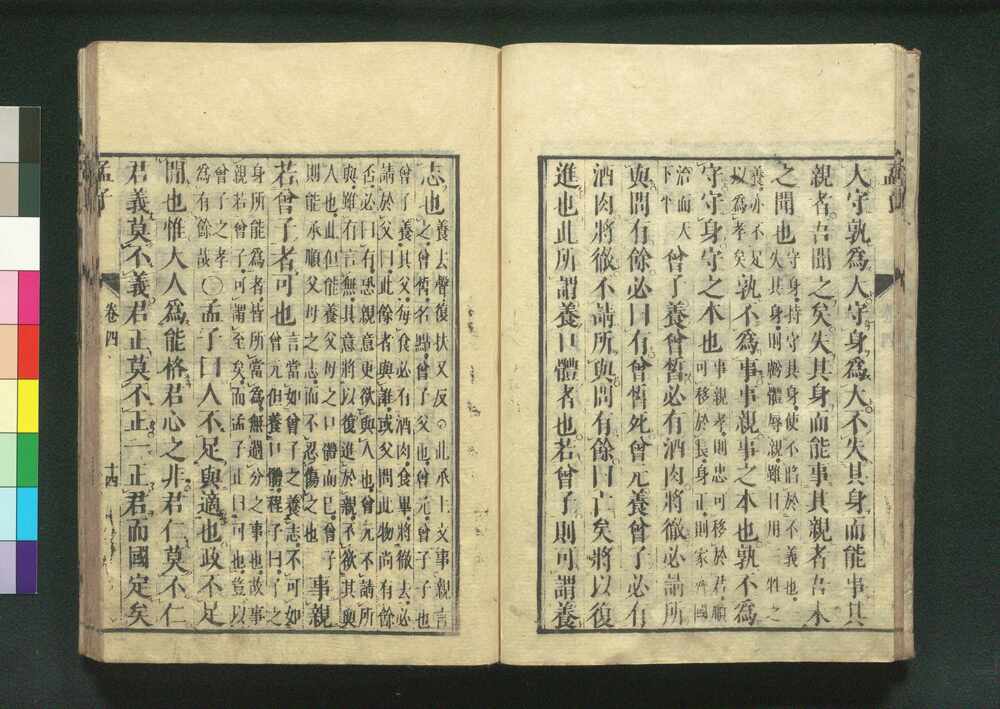 大守孰爲大守身爲大不失其身而能事其
親者吾聞之矣失其身而能事其親者吾未
之聞也守身持守其身使不陷於不義也
一失其身則虧體辱親雖日用三牲之
養亦不足
以爲孝矣孰不爲事事親事之本也孰不爲
守守身守之本也事親孝則忠可移於君順
可移於長身正則家齊國
治而天
下平曾子養曾晳必有酒肉將徹必請所
與問有餘必曰有曾晳死曾元養曾子必有
酒肉將徹不請所與問有餘曰亡矣將以復
進也此所謂養口體者也若曾子則可謂養
志也養去聲復扶又反○此承上文事親言
之曾晳名點曾子父也曾元曾子子也
曾子養其父每食必有酒肉食畢將徹去必
請於父曰此餘者與誰或父問此物尚有餘
否必曰有恐親意更欲與人也曾元不請所
與雖有言無其意將以復進於親不欲其與
人也此但能養父母之口體而已曾子
則能承順父母之志而不忍傷之也事親
若曾子者可也言當如曾子之養志不可如
曾元但養口體程子曰子之
身所能爲者皆所當爲無過分之事也故事
親若曾子可謂至矣而孟子止曰可也豈以
曾子之孝
爲有餘哉○孟子曰人不足與適也政不足
間也惟大人爲能格君心之非君仁莫不仁
君義莫不義君正莫不正一正君而國定矣
孟子
卷四
十四